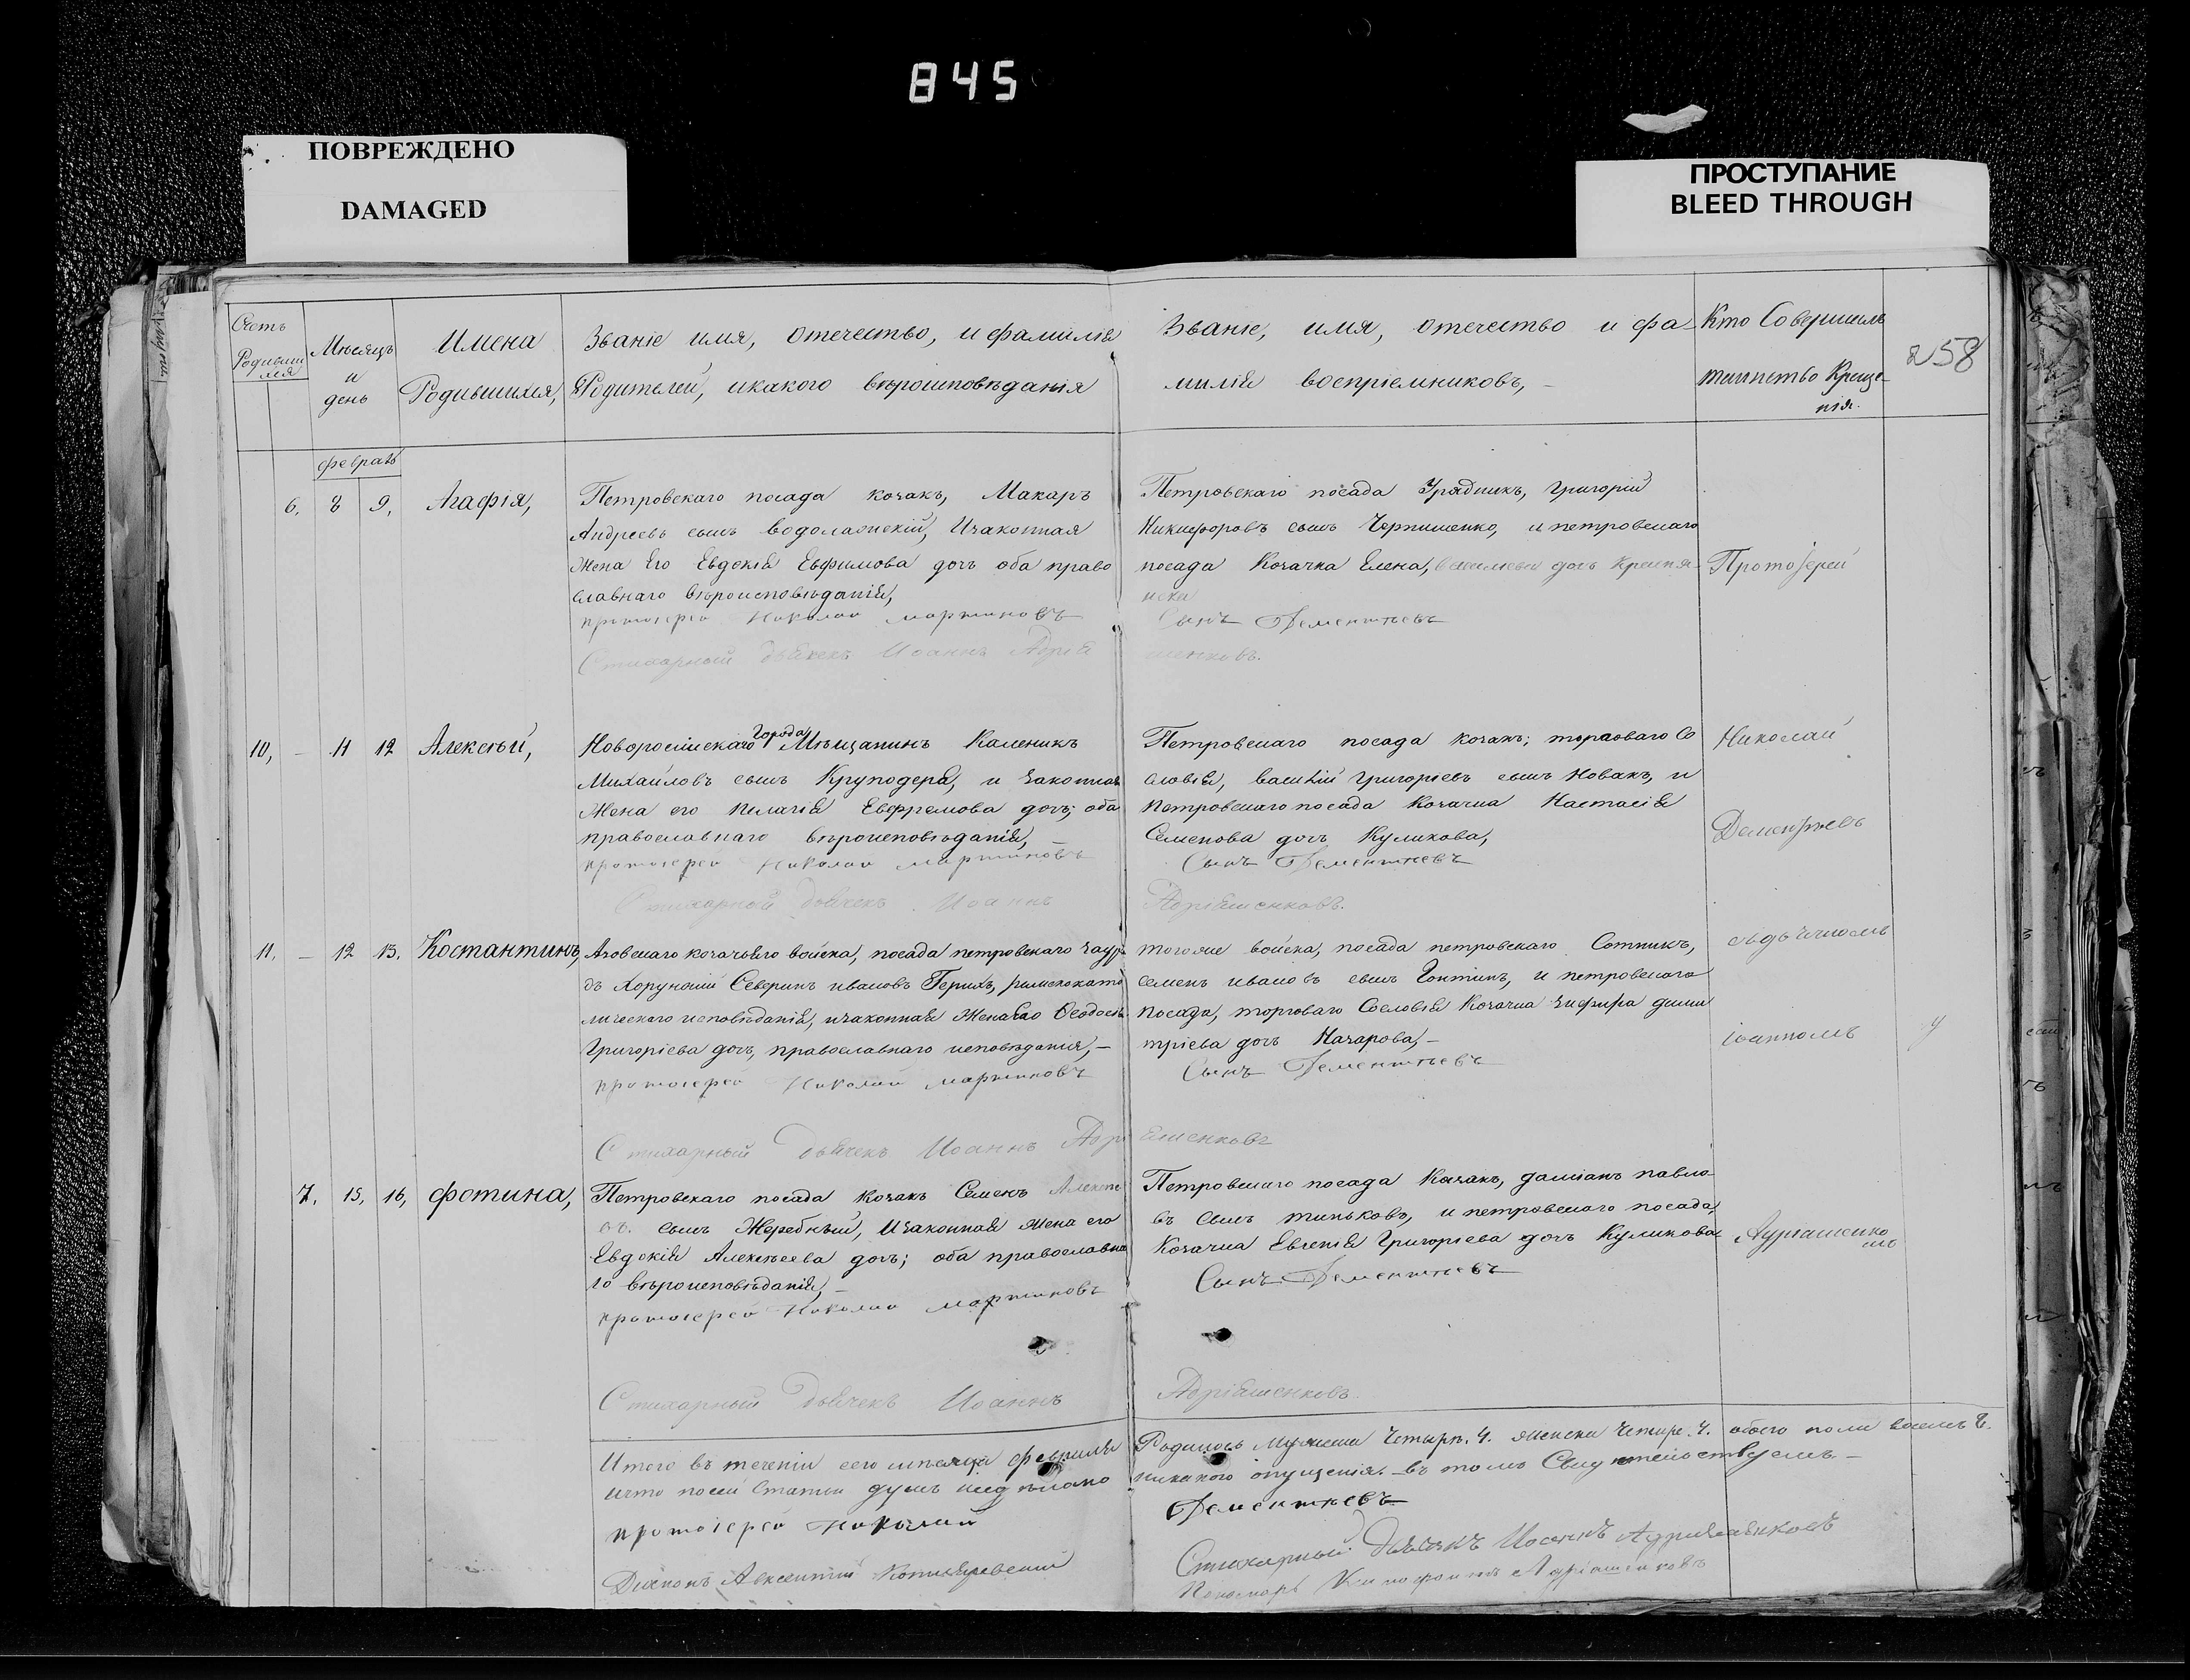 845
ПОВРЕЖДЕНО
DAMAGED
ПРОСТУПАНИЕ
BLEED THROUGH
258
Счетъ
Родившихся
Мѣсяцъ
и
день
Имена
Родившихся,
Званіе имя, отечество, и фамилія
Родителей, икакого вѣроисповѣданія
Званіе, имя, отечество и фа-
милія воспріемниковъ, -
Кто Совершилъ
таинство Креще-
нія.
февраль
6. 8 9, Агафія,
Петровскаго посада козакъ, Макаръ
Андреевъ сынъ водолажскій, Изаконная
Жена Его Евдокія Евфимова дочь оба право
славнаго вѣроисповѣданія,
протоіерей Николай мартиновъ
Стихарный дьячекъ Иоаннъ Адрія
Петровскаго посада Урядникъ, григорій
Никифоровъ сынъ Чернишенко, и петровскаго
посада Козачка Елена, дочь
Сынъ Дементьевъ
шенковъ.
Протоіерей
10, - 11 12 Алексѣй,
Новоросійскаго Города Мѣщанинъ Каленикъ
Михайловъ сынъ Круподера, и законная
Жена его пелагія Евфремова дочь; оба
православнаго вѣроисповѣданія,
протоіерей Николай мартиновъ
Стихарный дьячекъ Иоаннъ
Петровскаго посада козакъ; торговаго Со
словія, василій григоріевъ сынъ Новакъ, и
петровскаго посада Козачка Настасія
Семенова дочь Куликова,
Сынъ Дементьевъ
Адріяшенковъ.
Николай
Дементьевъ
11. - 12 13. Костантинъ,
Азовскаго козачьяго войска, посада петровскаго зауря
дъ Хорунжій Северинъ ивановъ Герихъ, римскокато
лическаго исповѣданія, изаконная Жена Его Ѳеодосія
Григоріева дочь, православнаго исповѣданія, -
протоіерей Николай мартиновъ
Стихарный дьячекъ Иоаннъ Адрі
тогоже войска, посада петровскаго Сотникъ,
семенъ ивановъ сынъ Гонтинъ, и петровскаго
посада, торговаго Сословія Козачка дими
тріева дочь Назарова, -
Сынъ Дементьевъ
яшенковъ
іоанномъ
7. 15. 16, фотина,
Петровскаго посада Козакъ Семенъ Алексѣе
въ. сынъ Жеребный, Изаконная жена его
Евдокія Алексѣева дочь; оба православна
го вѣроисповѣданія, -
протоіерей Николай мартиновъ
Стихарный дьячекъ Иоаннъ
Петровскаго посада Козакъ, даміанъ павло
въ сынъ тиньковъ, и петровскаго посада,
Козачка Евгенія Григоріева дочь Куликова
Сынъ Дементьевъ
Адріяшенковъ.
Итого въ теченіи сего мѣсяца февраля
Родилось Мужеска Четыри. 4. женска Четыре. 4. обоего пола восемь 8.
ичто посей Статьи никакого опущенія. въ томъ Свидетельствуемъ. -
протоіерей Николай
Дементьевъ
Стихарный дьячекъ Иоаннъ Адріяшенковъ
Діаконъ Авксентій Котляревскій
Пономарь